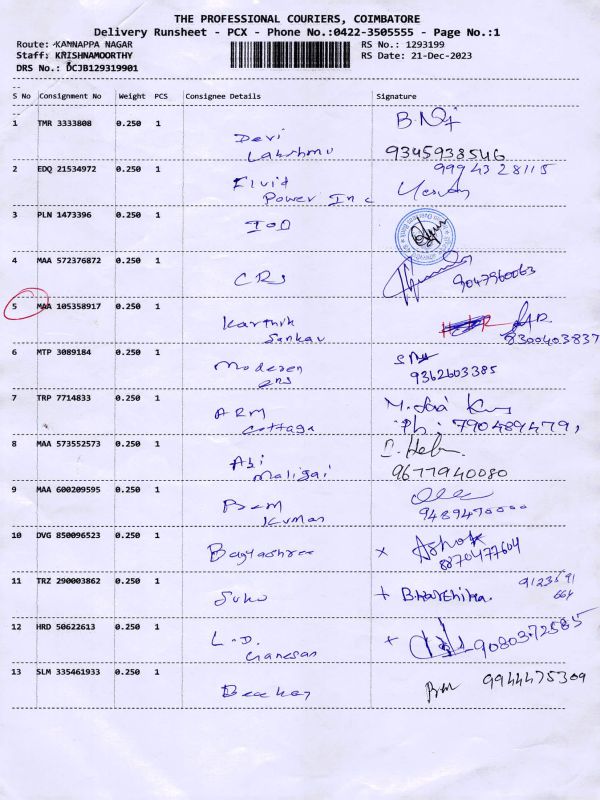 THE PROFESSIONAL COURIERS, COIMBATORE
Delivery Runsheet - PCX - Phone No.:0422-3505555 - Page No.:1
Route: KANNAPPA NAGAR RS No.: 1293199
Staff: KRISHNAMOORTHY RS Date: 21-Dec-2023
DRS No.: DCJB129319901
S No Consignment No Weight PCS Consignee Details Signature
1 TMR 3333808 0.250 1
Devi
Lakshmi 9345938546
2 EDQ 21534972 0.250 1 9994328115
Fluid
Power Inc
3 PLN 1473396 0.250 1
IOD
4 MAA 572376872 0.250 1
CRS 9047960063
5 MAA 105358917 0.250 1
Karthik
Sankar 8300403837
6 MTP 3089184 0.250 1
Moderen
ens 9362603385
7 TRP 7714833 0.250 1
ARM
cottage Ph: 790489479,
8 MAA 573552573 0.250 1
Abi
Maligai 9677940080
9 MAA 600209595 0.250 1
Ram
Kumar 9489470000
10 DVG 850096523 0.250 1
Bagyashree x Ashok
8870477604
11 TRZ 290003862 0.250 1 9123591
664
+ Bharthika.
12 HRD 50622613 0.250 1
L.D. + 9080372585
Ganesan
13 SLM 335461933 0.250 1
9944475309